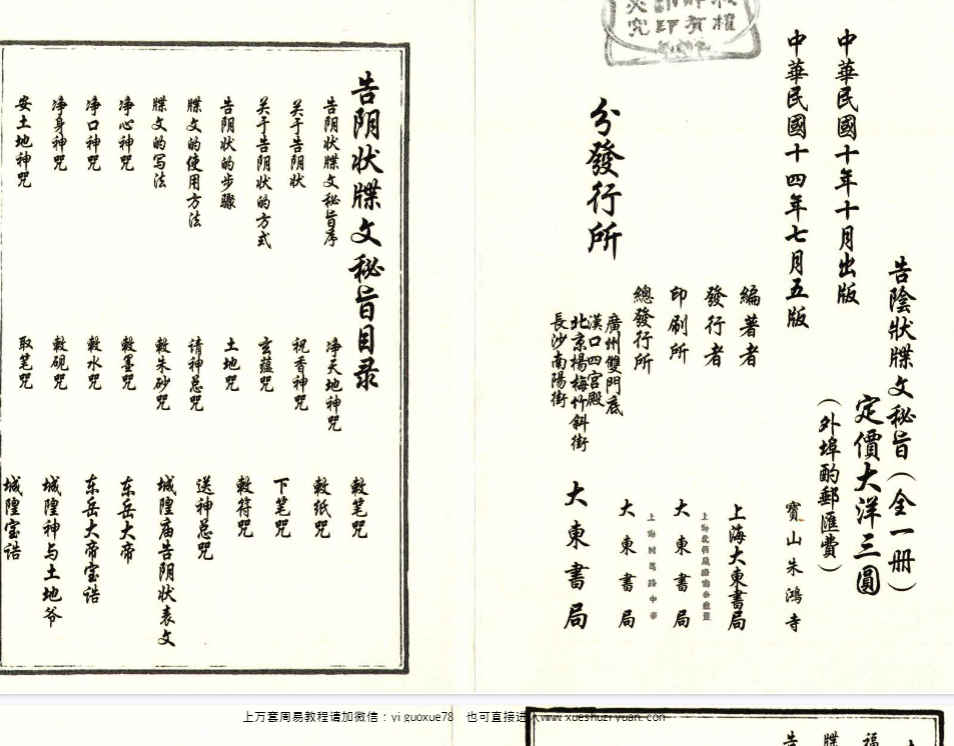 中華民國十年十月出版
中華民國十四年七月五版
告陰狀牒文秘旨（全一册）
定價大洋三圓
（外埠酌郵匯費）
編著者
寳山朱鴻寺
發行者
上海大東書局
印刷所
大東書局
總發行所
大東書局
分發行所
廣州雙門底
漢口四宫殿
北京楊梅竹斜街
長沙南陽街
大東書局
告阴状牒文秘旨目录
告阴状牒文秘旨序
关于告阴状
关于告阴状的方式
告阴状的步骤
牒文的使用方法
牒文的写法
净心神咒
净口神咒
净身神咒
安土地神咒
净天地神咒
祝香神咒
玄蕴咒
土地咒
请神总咒
敕朱砂咒
敕墨咒
敕水咒
敕砚咒
取笔咒
敕笔咒
敕纸咒
下笔咒
敕符咒
送神总咒
城隍庙告阴状表文
东岳大帝
东岳大帝宝诰
城隍神与土地爷
城隍宝诰
上万套周易教程请加微信：yi guoxue78 也可直接进入www.xueshuziyuan.com